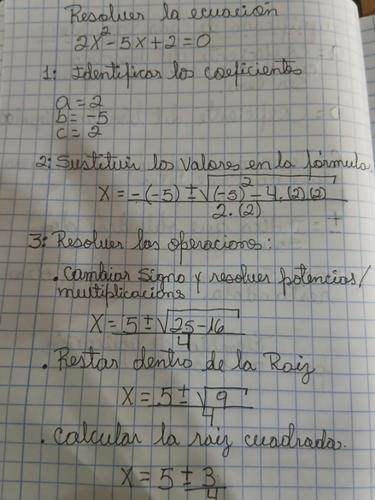 Resolver la ecuación
2x² - 5x + 2 = 0
1: Identificar los coeficientes
a = 2
b = -5
c = 2
2: Sustituir los valores en la fórmula
x = -(-5) ± √(-5)² - 4.(2)(2)
2.(2)
3: Resolver las operaciones:
. cambiar signo y resolver potencias/
multiplicacions
x = 5 ± √25 - 16
4
. Restar dentro de la Raiz
x = 5 ± √9
4
. calcular la raiz cuadrada.
x = 5 ± 3
4